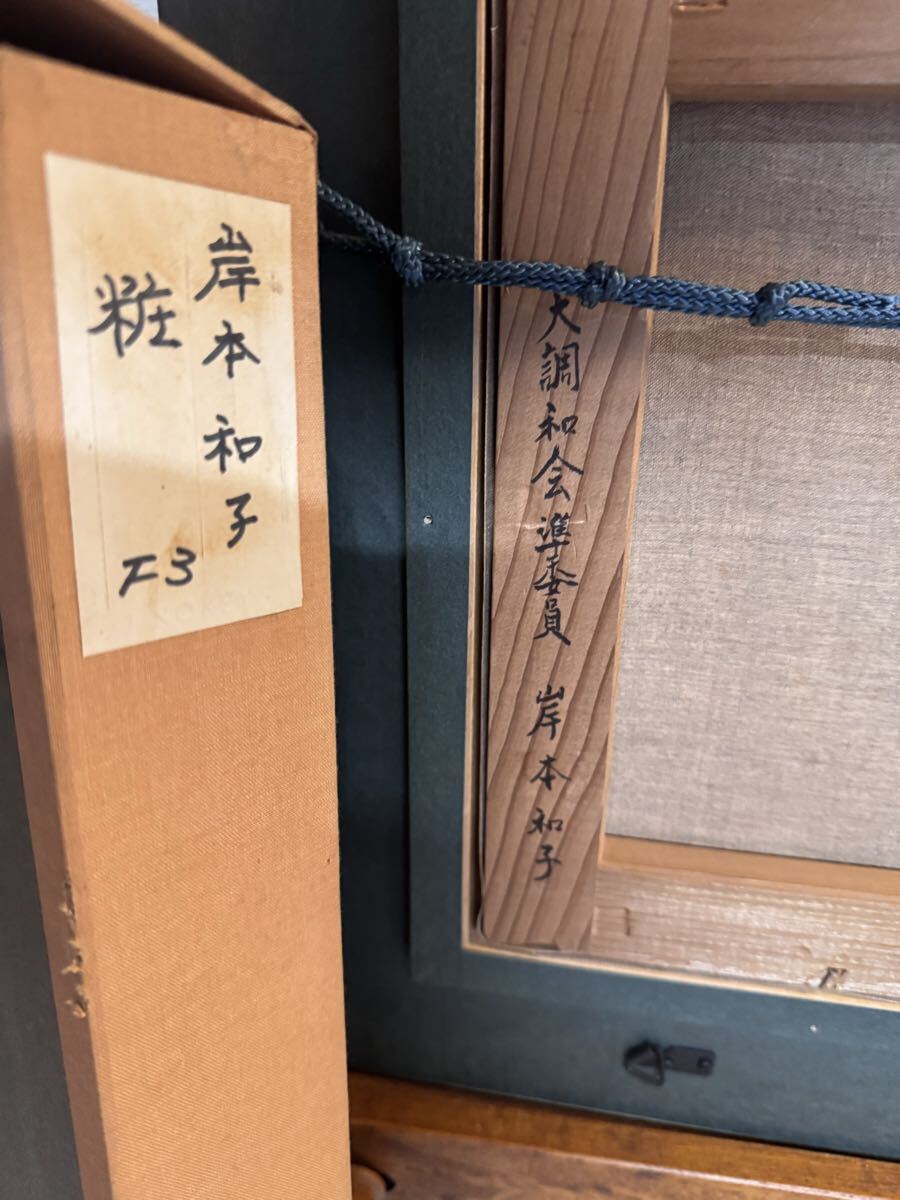 岸本和子
粧
F3
大調和会準委員 岸本和子